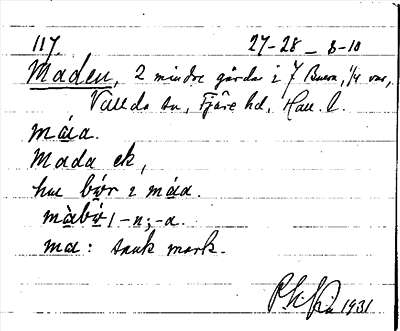 117 27-28 - 8-10
Maden, 2 mindre gårdar i 7 Buera, 1/4 var,
Vallda sn, Fjäre hd, Hall. l.
máa.
Mada ek,
hu bor i máa.
màbó, -n; -a.
ma: sank mark.
1931